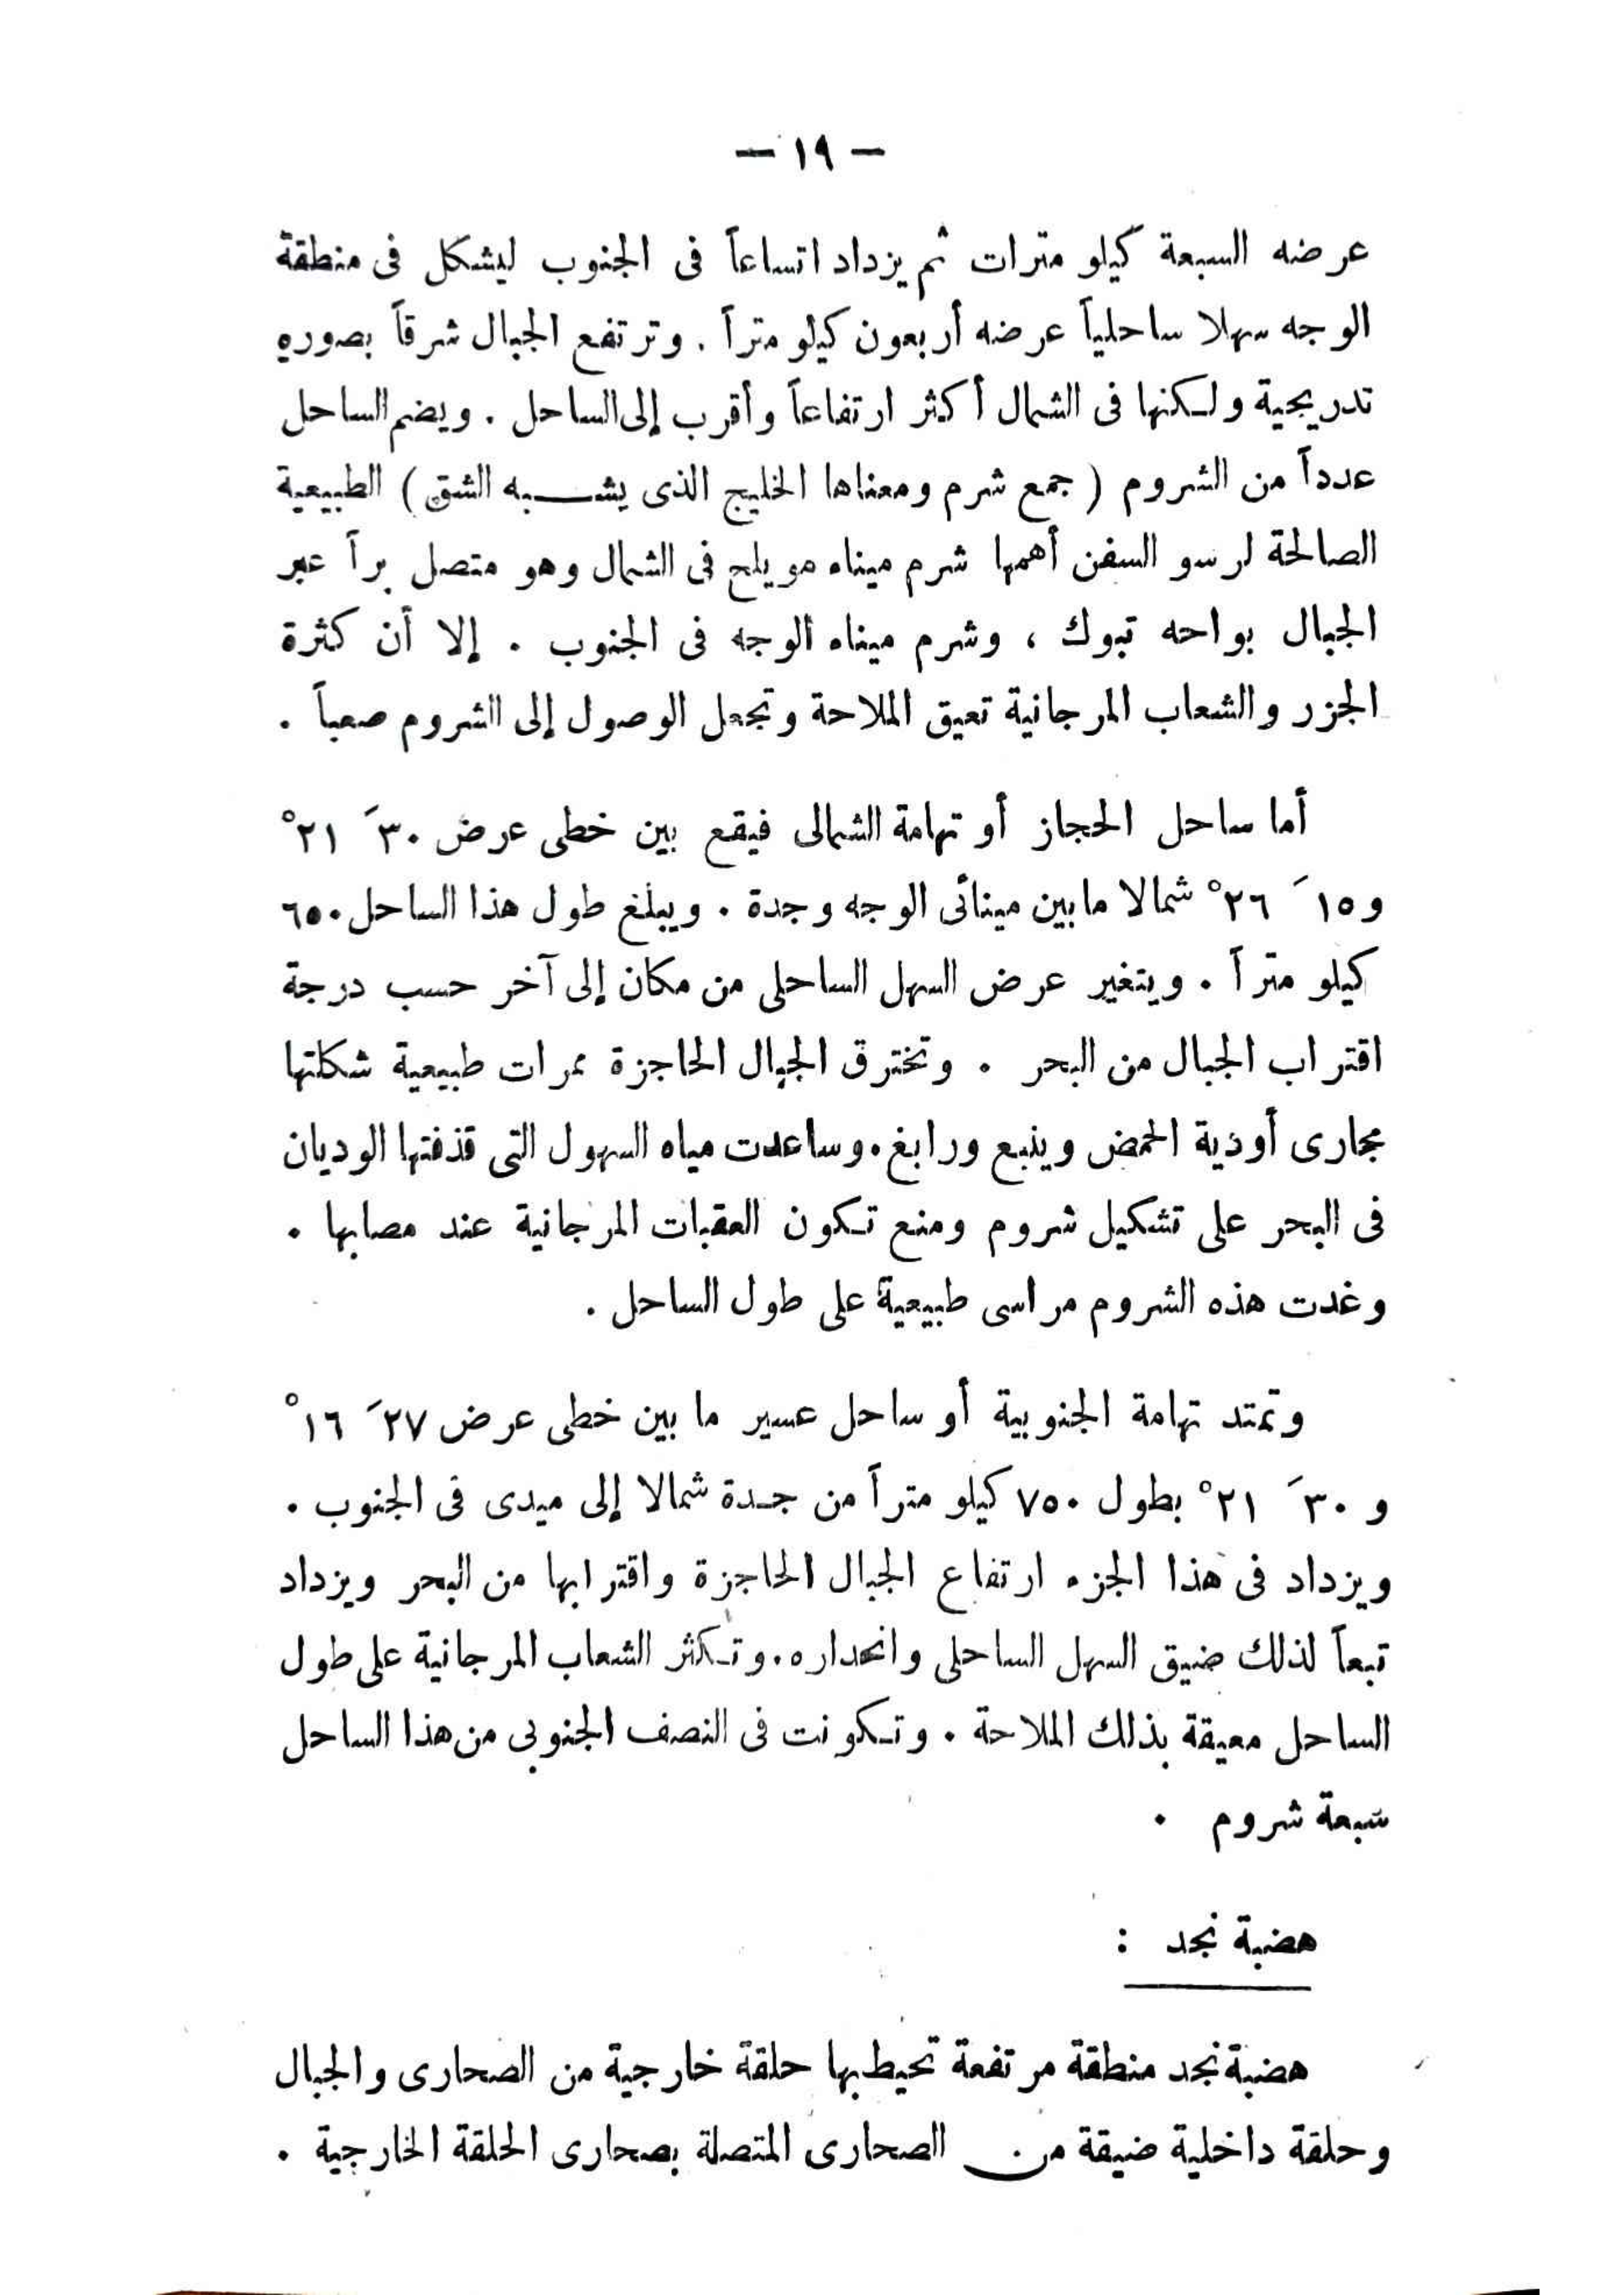 — ١٩ —
عرضه السبعة كيلو مترات ثم يزداد اتساعاً فى الجنوب ليشكل فى منطقة
الوجه سهلا ساحلياً عرضه أربعون كيلو متراً . وترتفع الجبال شرقاً بصوره
تدريجية ولكنها فى الشمال أكثر ارتفاعاً وأقرب إلى الساحل . ويضم الساحل
عدداً من الشروم ( جمع شرم ومعناها الخليج الذى يشبه الشق ) الطبيعية
الصالحة لرسو السفن أهمها شرم ميناء مويلح فى الشمال وهو متصل براً عبر
الجبال بواحه تبوك ، وشرم ميناء الوجه فى الجنوب . إلا أن كثرة
الجزر والشعاب المرجانية تعيق الملاحة وتجعل الوصول إلى الشروم صعباً .
أما ساحل الحجاز أو تهامة الشمالى فيقع بين خطى عرض ٣٠َ ٢١°
و١٥َ ٢٦° شمالا ما بين مينائى الوجه وجدة . ويبلغ طول هذا الساحل ٦٥٠
كيلو متراً . ويتغير عرض السهل الساحلى من مكان إلى آخر حسب درجة
اقتراب الجبال من البحر . وتخترق الجبال الحاجزة ممرات طبيعية شكلتها
مجارى أودية الحمض وينبع ورابغ . وساعدت مياه السهول التى قذفتها الوديان
فى البحر على تشكيل شروم ومنع تكون العقبات المرجانية عند مصابها .
وغدت هذه الشروم مراسى طبيعية على طول الساحل .
وتمتد تهامة الجنوبية أو ساحل عسير ما بين خطى عرض ٢٧َ ١٦°
و ٣٠َ ٢١° بطول ٧٥٠ كيلو متراً من جدة شمالا إلى ميدى فى الجنوب .
ويزداد فى هذا الجزء ارتفاع الجبال الحاجزة واقترابها من البحر ويزداد
تبعاً لذلك ضيق السهل الساحلى وانحداره . وتكثر الشعاب المرجانية على طول
الساحل معيقة بذلك الملاحة . وتكونت فى النصف الجنوبى من هذا الساحل
سبعة شروم .
هضبة نجد :
هضبة نجد منطقة مرتفعة تحيط بها حلقة خارجية من الصحارى والجبال
وحلقة داخلية ضيقة من الصحارى المتصلة بصحارى الحلقة الخارجية .